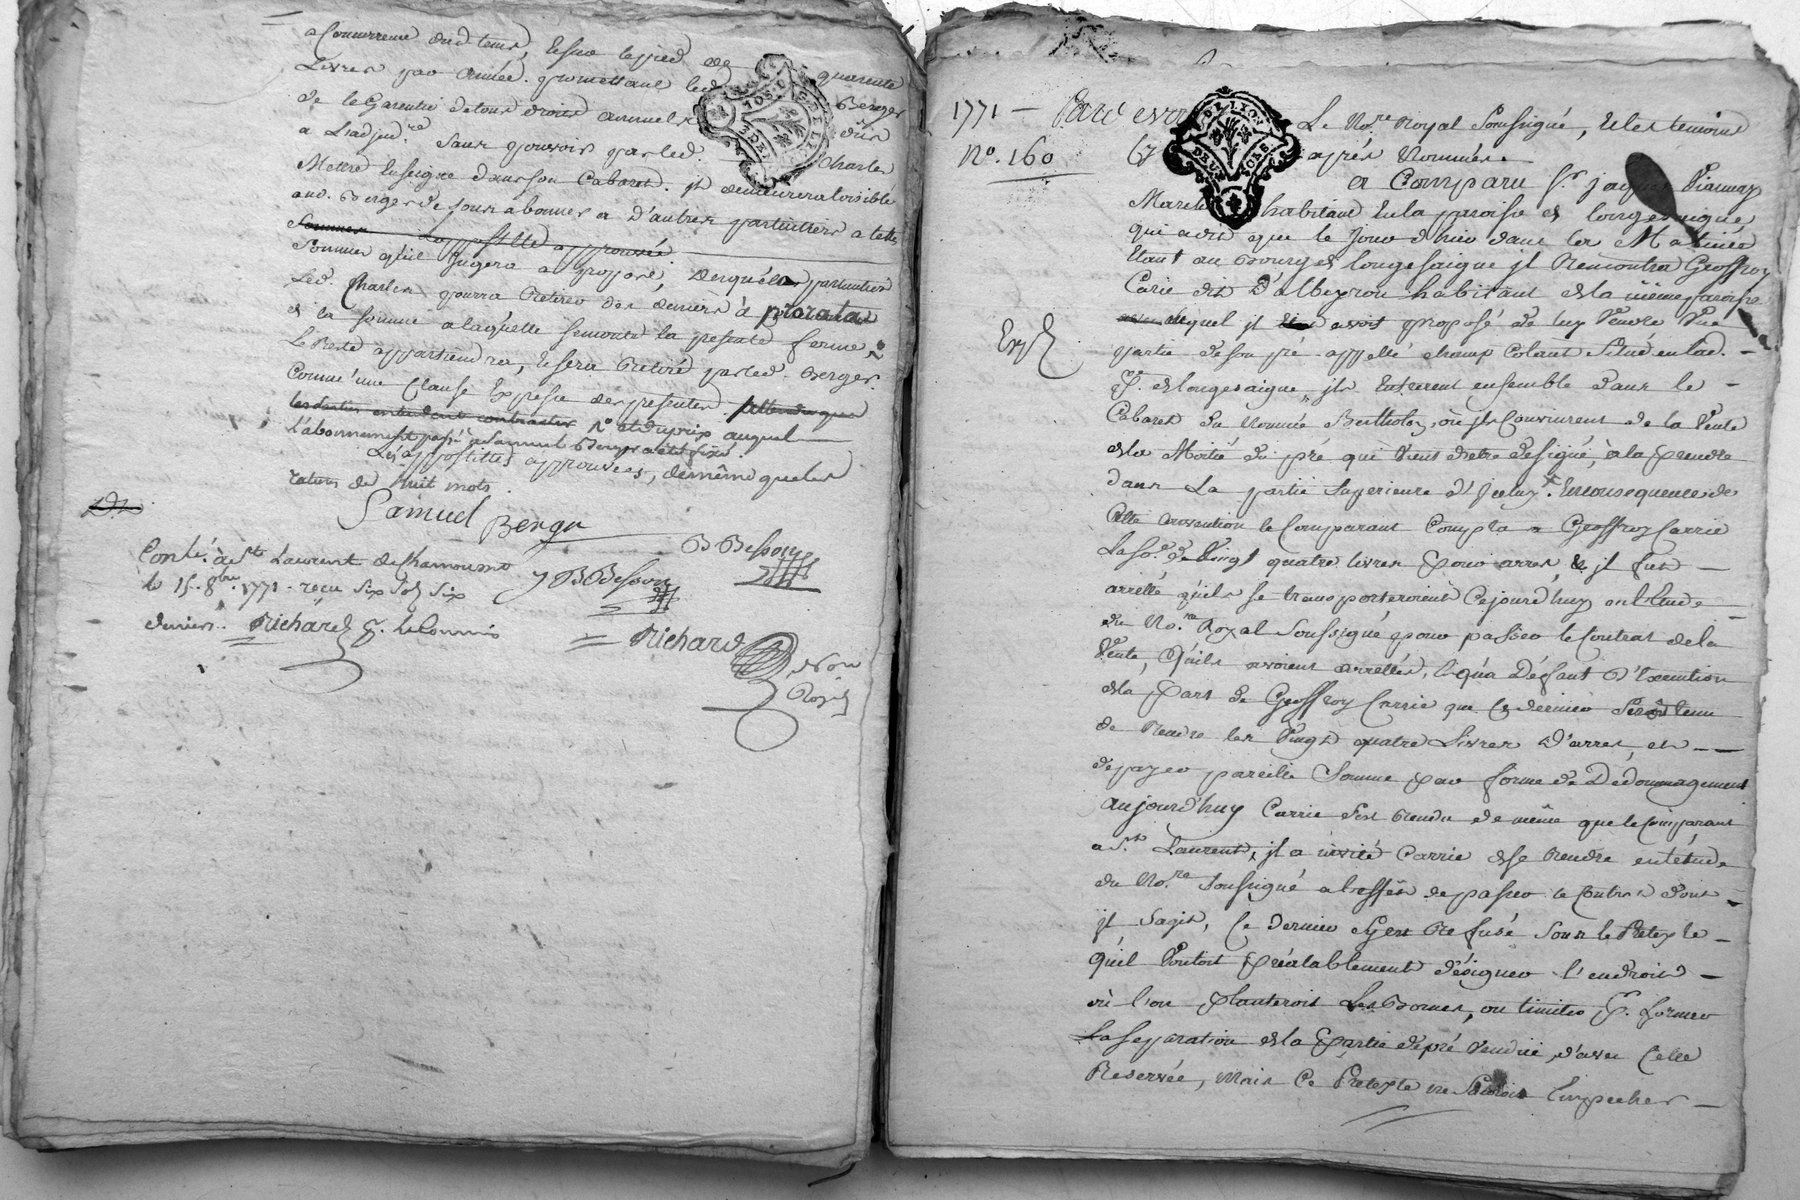 a Concurrence dud. tems, Et sur le pied de quarente
Livres par Année. promettant led. Berger
de le Garentir de tous droits annuels dûs
a L'adjud.re Sans pouvoir par led. Charles
Mettre Enseigne dans son Cabaret. jl demeurera loisible
aud. Berger de sous abonner a D'autres particuliers a telle
Somme apostille approuvée
Somme qu'il Jugera a propos, Desquels particuliers
Led. Charles pourra Retirer des deniers à prorata
de la somme a laquelle se monte la presente ferme,
Le Reste appartiendra, & sera Retiré par led. Berger.
Comme une Clause Expresse des presentes.
les parties entendent contracter et du prix auquel
L'abonnement passé a Samuel Berger a été fixé.
Les appostilles approuvées, de même que les
ratures de huit mots.
Samuel Berger
B Besson
J B Besson
Conlé. à St Laurent de Chamousset
le 15. 8bre 1771. reçu Six Sols Six
deniers. Richard p. le Commis
Richard
Nore
Royal
1771 —
No. 160
DE LYON
DEUX SOLS
Le No.re Royal Soussigné, & les temoins
après Nommés.
a Comparu Sr. jaques
March habitant En la paroisse de longesaigne
qui a dit que le Jour d'hier dans la Matinée
Etant au Bourg de longesaigne jl Rencontra Geoffroy
Carié dit D'albeyron habitant de la même paroisse
auquel jl avoit proposé de luy Vendre Une
partie de son pré appellé champ Colant Situé en lad.
P. de longesaigne, jls Entrerent ensemble dans le
Cabaret du Nommé Bertholon, où jls Convinrent de la Vente
de la Moitié du pré qui Vient d'etre designé, à la prendre
dans La partie Superieure d'Jceluy. En consequence de
Cette convention le Comparant Compta a Geoffroy Carrié
La So.e de Vingt quatre livres pour arres, & jl fut
arretté qu'ils se transporteroient Cejourd'huy en l'Etude
du No.re Royal Soussigné pour passer le Contrat de la
Vente, qu'ils avoient arrettée, & qu'a Défaut d'Execution
de la part de Geoffroy Carrié que Ce dernier Seroit tenu
de Rendre les Vingt quatre Livres D'arres, et
de payer pareille Somme par forme de Dédommagement
aujourd'huy Carrié s'est Rendu de même que le Comparant
a St Laurent, jl a invité Carrié de se Rendre en l'etude
du No.re Soussigné a l'effet de passer le Contrat dont
jl s'agit, Ce Dernier s'y est Refusé Sous le Pretexte
qu'il Vouloit préalablement désigner l'endroit
où l'on planteroit Les Bornes, ou limites p. former
La separation de la Partie de pré Vendüe d'avec Celle
Reservée, Mais Ce Pretexte ne Sauroit Empecher